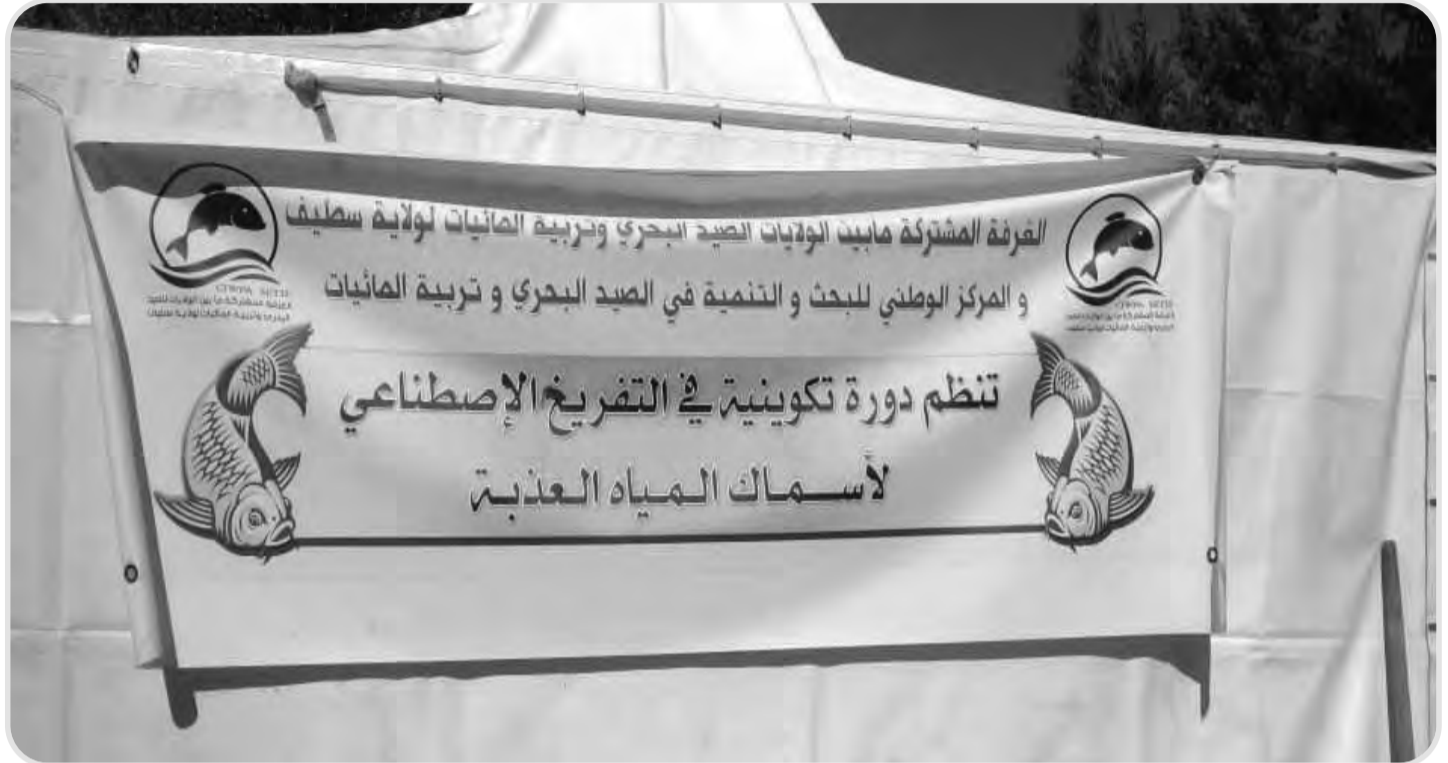 الغرفة المشتركة مابين الولايات الصيد البحري وتربية المائيات لولاية سطيف
و المركز الوطني للبحث و التنمية في الصيد البحري و تربية المائيات
تنظم دورة تكوينية في التفريخ الإصطناعي
لأسماك المياه العذبة